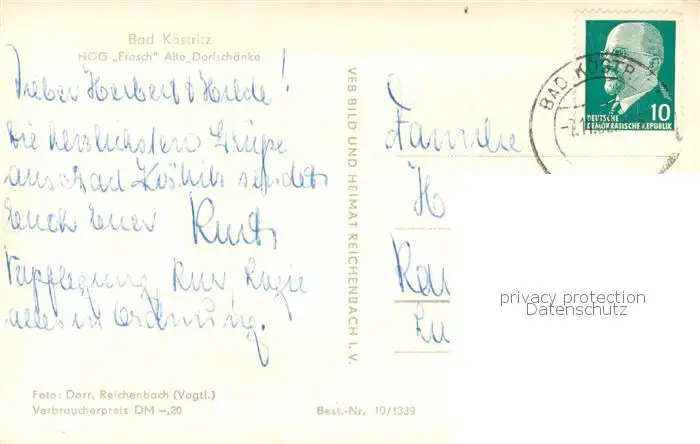 Bad Köstritz
HOG „Frosch" Alte Dorfschänke
Lieber Herbert & Hilde!
Die herzlichsten Grüße
aus Bad Köstritz sendet
Euch Euer Kurt
Verpflegung, Kur, Logie
alles in Ordnung.
Foto: Darr, Reichenbach (Vogtl.)
Verbraucherpreis DM -,20
Best.-Nr. 10/1339
VEB BILD UND HEIMAT REICHENBACH I. V.
BAD KÖSTR
10
DEUTSCHE
DEMOKRATISCHE REPUBLIK
Familie
H
Lu
privacy protection
Datenschutz